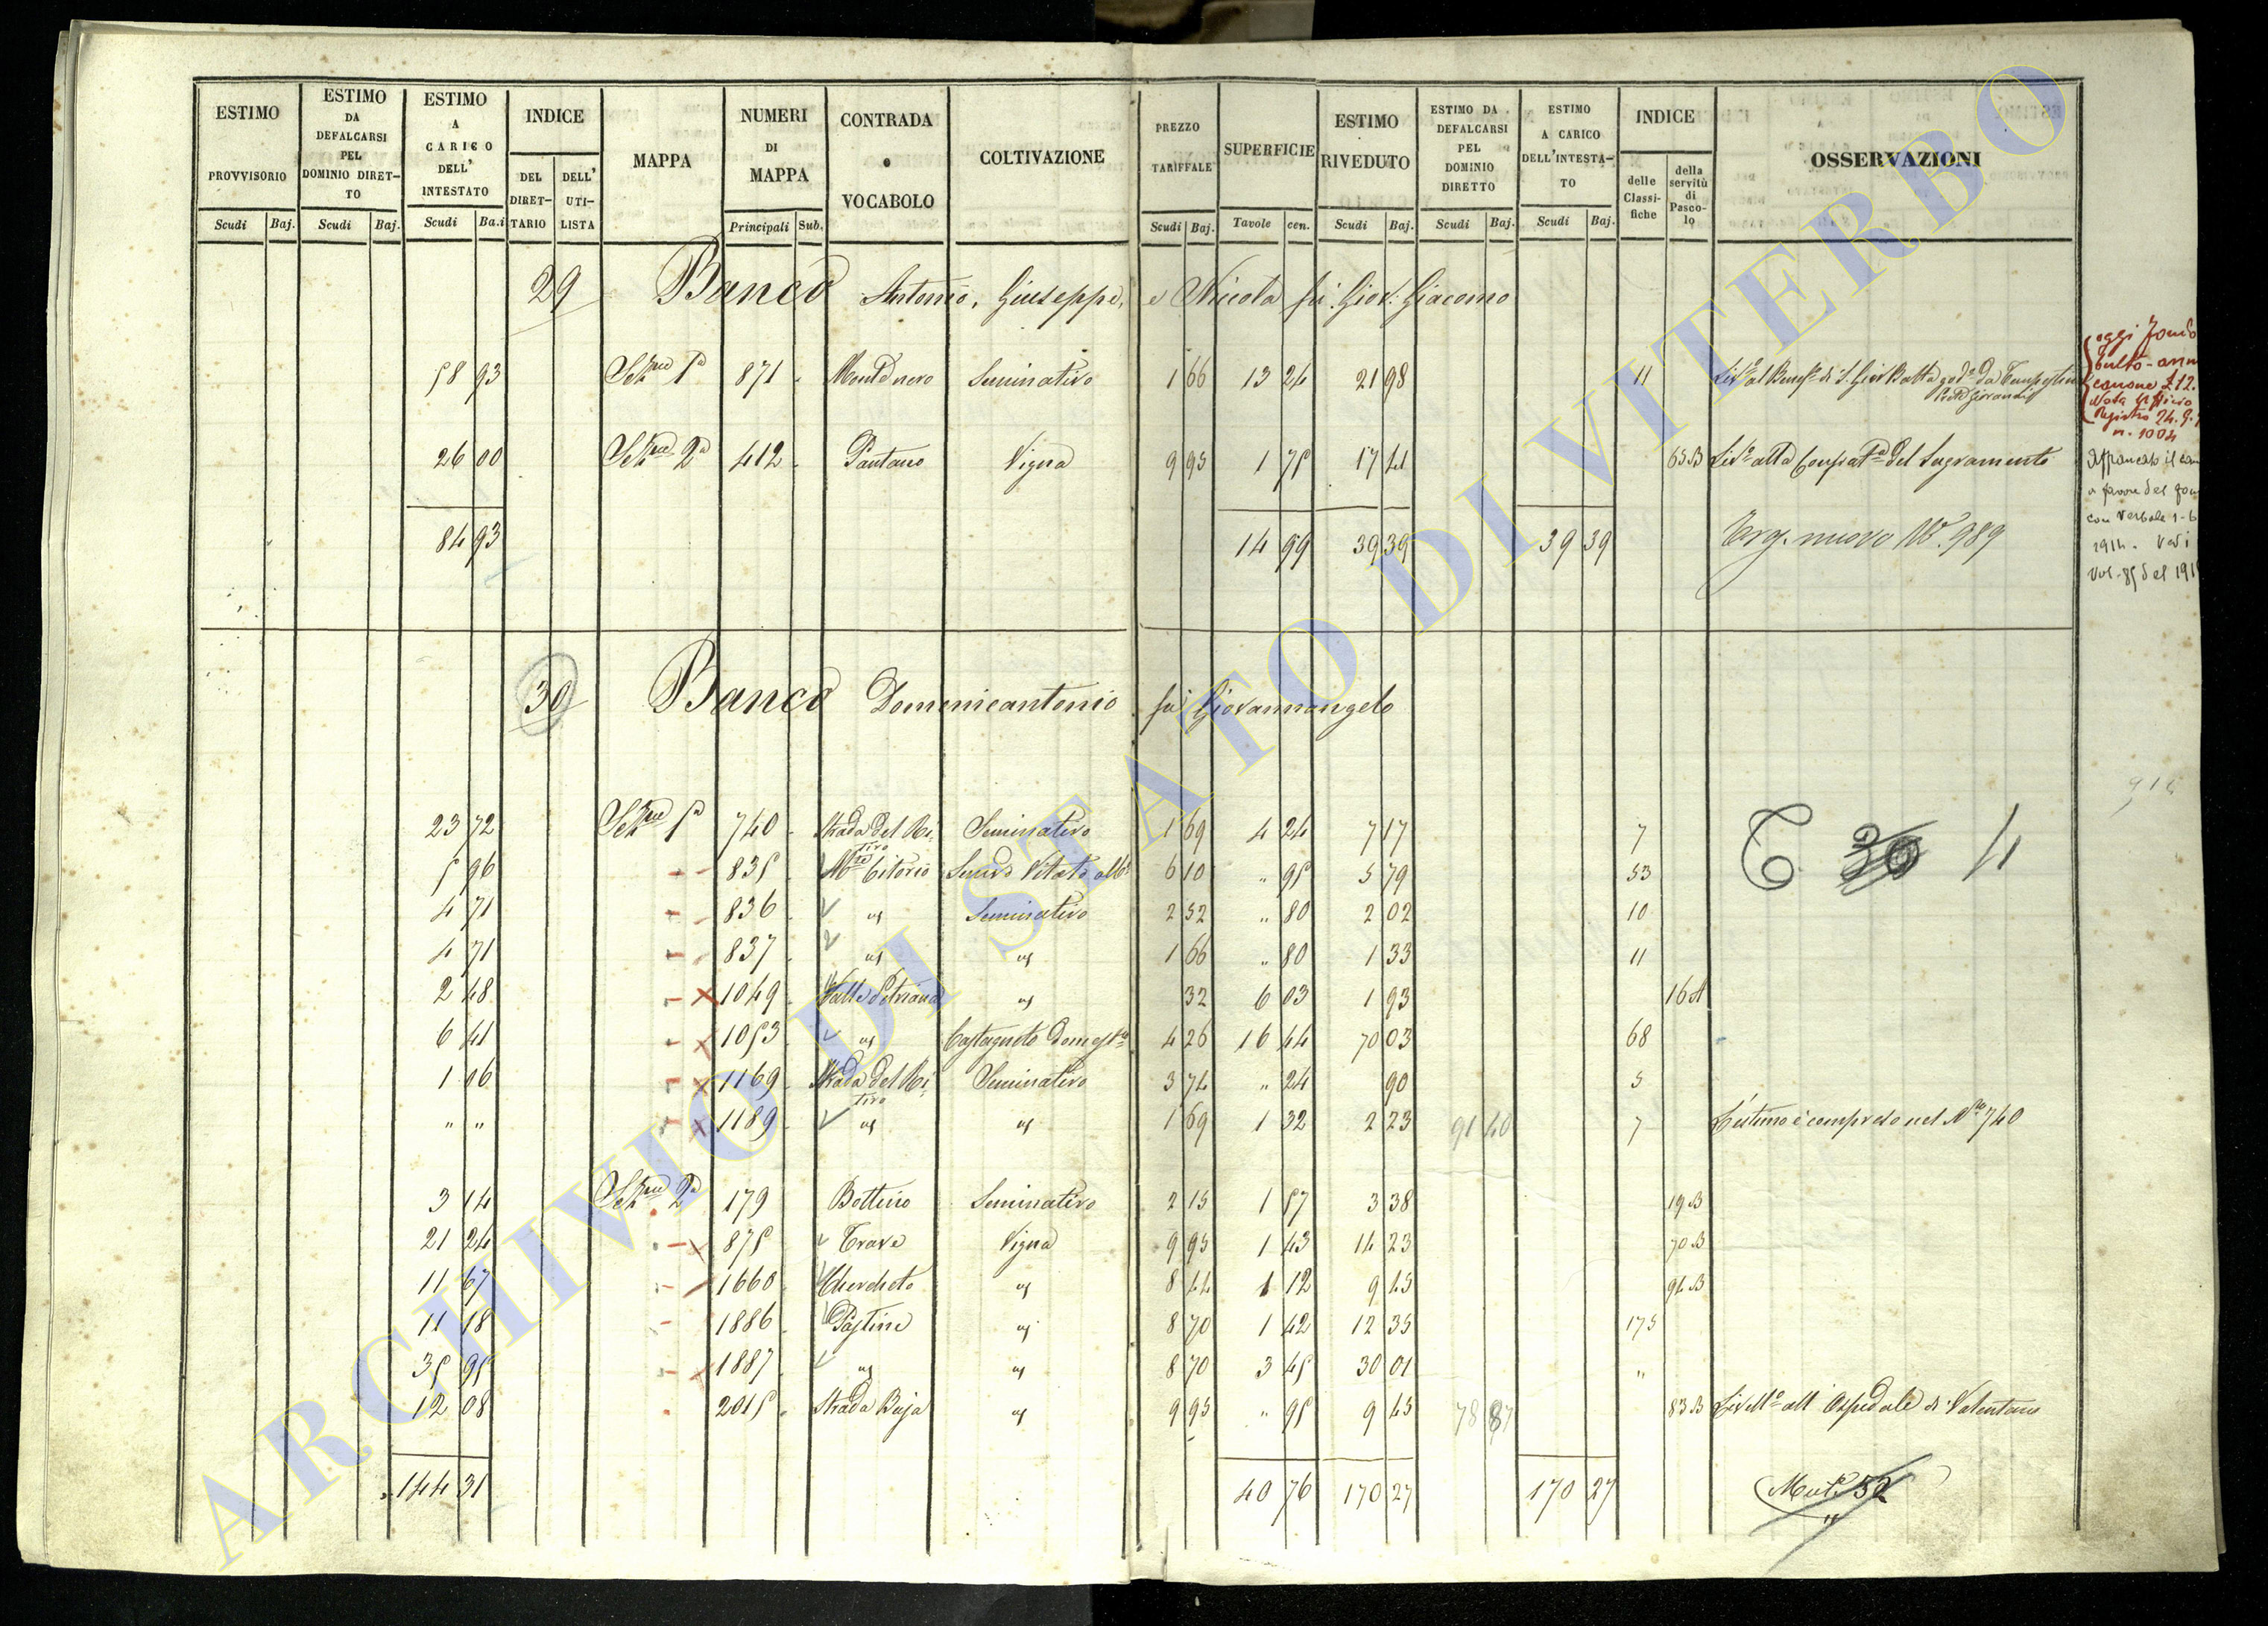 ESTIMO PROVVISORIO Scudi Baj.
ESTIMO DA DEFALCARSI PEL DOMINIO DIRETTO Scudi Baj.
ESTIMO A CARICO DELL' INTESTATO Scudi Ba.i
INDICE DEL DIRETTARIO DELL' UTILISTA
MAPPA
NUMERI DI MAPPA Principali Sub.
CONTRADA o VOCABOLO
COLTIVAZIONE
PREZZO TARIFFALE Scudi Baj.
SUPERFICIE Tavole cen.
ESTIMO RIVEDUTO Scudi Baj.
ESTIMO DA DEFALCARSI PEL DOMINIO DIRETTO Scudi Baj.
ESTIMO A CARICO DELL'INTESTATO Scudi Baj.
INDICE delle Classifiche della servitù di Pascolo
OSSERVAZIONI
29 Banco Antonio, Giuseppe, e Nicola fu Giov: Giacomo
58 93 Sezne 1a 871 Monte nero Seminativo 1 66 13 24 21 98 11
26 00 Sezne 2a 412 Pantano Vigna 9 95 1 75 17 41 65 B Livo alla Confrata del Sagramento
84 93 14 99 39 39 39 39 Targ. nuovo No. 989
oggi
culto - ann
canone £ 12.
Nota Ufficio
Registro 24.9.
n. 1004
Affrancato il can
a favore del
con verbale 1-6
1914. Vedi
Vol. 85 del 191
30 Banco Domenicantonio fu Giovannangelo
23 72 Sezne 1a 740 Strada del Ritiro Seminativo 1 69 4 24 7 17 7
5 96 - - 835 Mte Citorio Semvo Vitato albo 6 10 " 95 5 79 53
4 71 - - 836 us Seminativo 2 52 " 80 2 02 10
4 71 - - 837 us us 1 66 " 80 1 33 11
2 48 - x 1049 Valle Petriana us 32 6 03 1 93 16 A
6 41 - x 1053 us Castagneto Domestco 4 26 16 44 70 03 68
1 06 - x 1169 Strada del Ritiro Seminativo 3 74 " 24 90 5
" " - x 1189 us us 1 69 1 32 2 23 91 40 7 L'estimo è compreso nel No 740
3 14 Sezne 2a 179 Bottino Seminativo 2 15 1 57 3 38 19 B
21 24 - x 875 Trave Vigna 9 95 1 43 14 23 70 B
11 67 - - 1660 Chercheto us 8 44 1 12 9 45 94 B
11 18 - 1886 Pastine us 8 70 1 42 12 35 175
35 95 - x 1887 us us 8 70 3 45 30 01 "
12 08 - 2015 Strada Buja us 9 95 " 95 9 45 78 87 83 B Livello all Ospedale di Valentano
144 31 40 76 170 27 170 27
C 30 4
Muta 52
"
ARCHIVIO DI STATO DI VITERBO